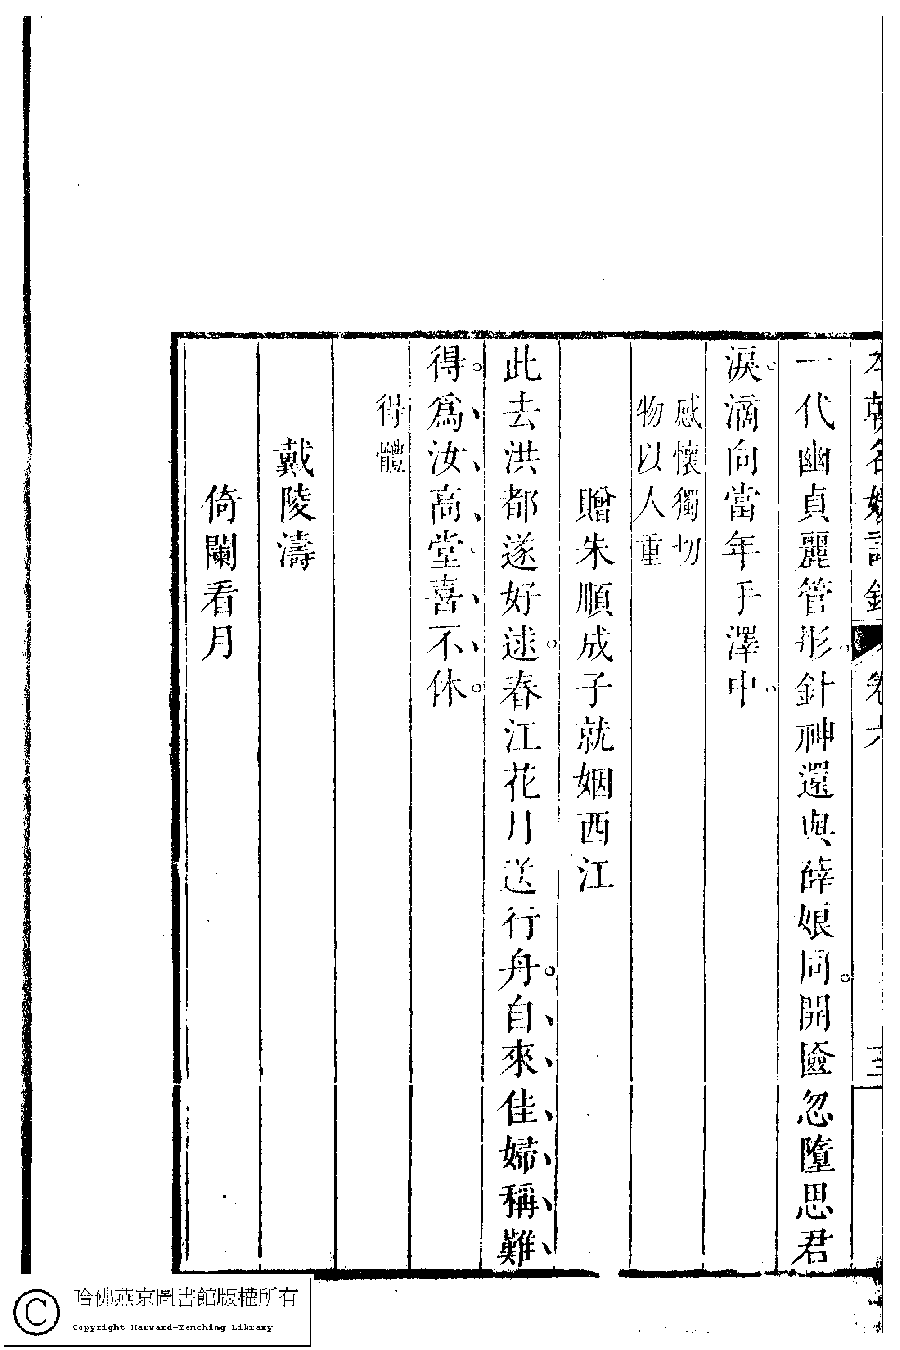 本朝名媛詩鈔 卷六 三
一代幽貞麗管彤針神還與薛娘同開奩忽墮思君
淚滴向當年手澤中
感懷獨切
物以人重
贈朱順成子就姻西江
此去洪都遂好逑春江花月送行舟自來佳婦稱難
得爲汝高堂喜不休
得體
戴陵濤
倚闌看月
哈佛燕京圖書館版權所有
Copyright Harvard-Yenching Library